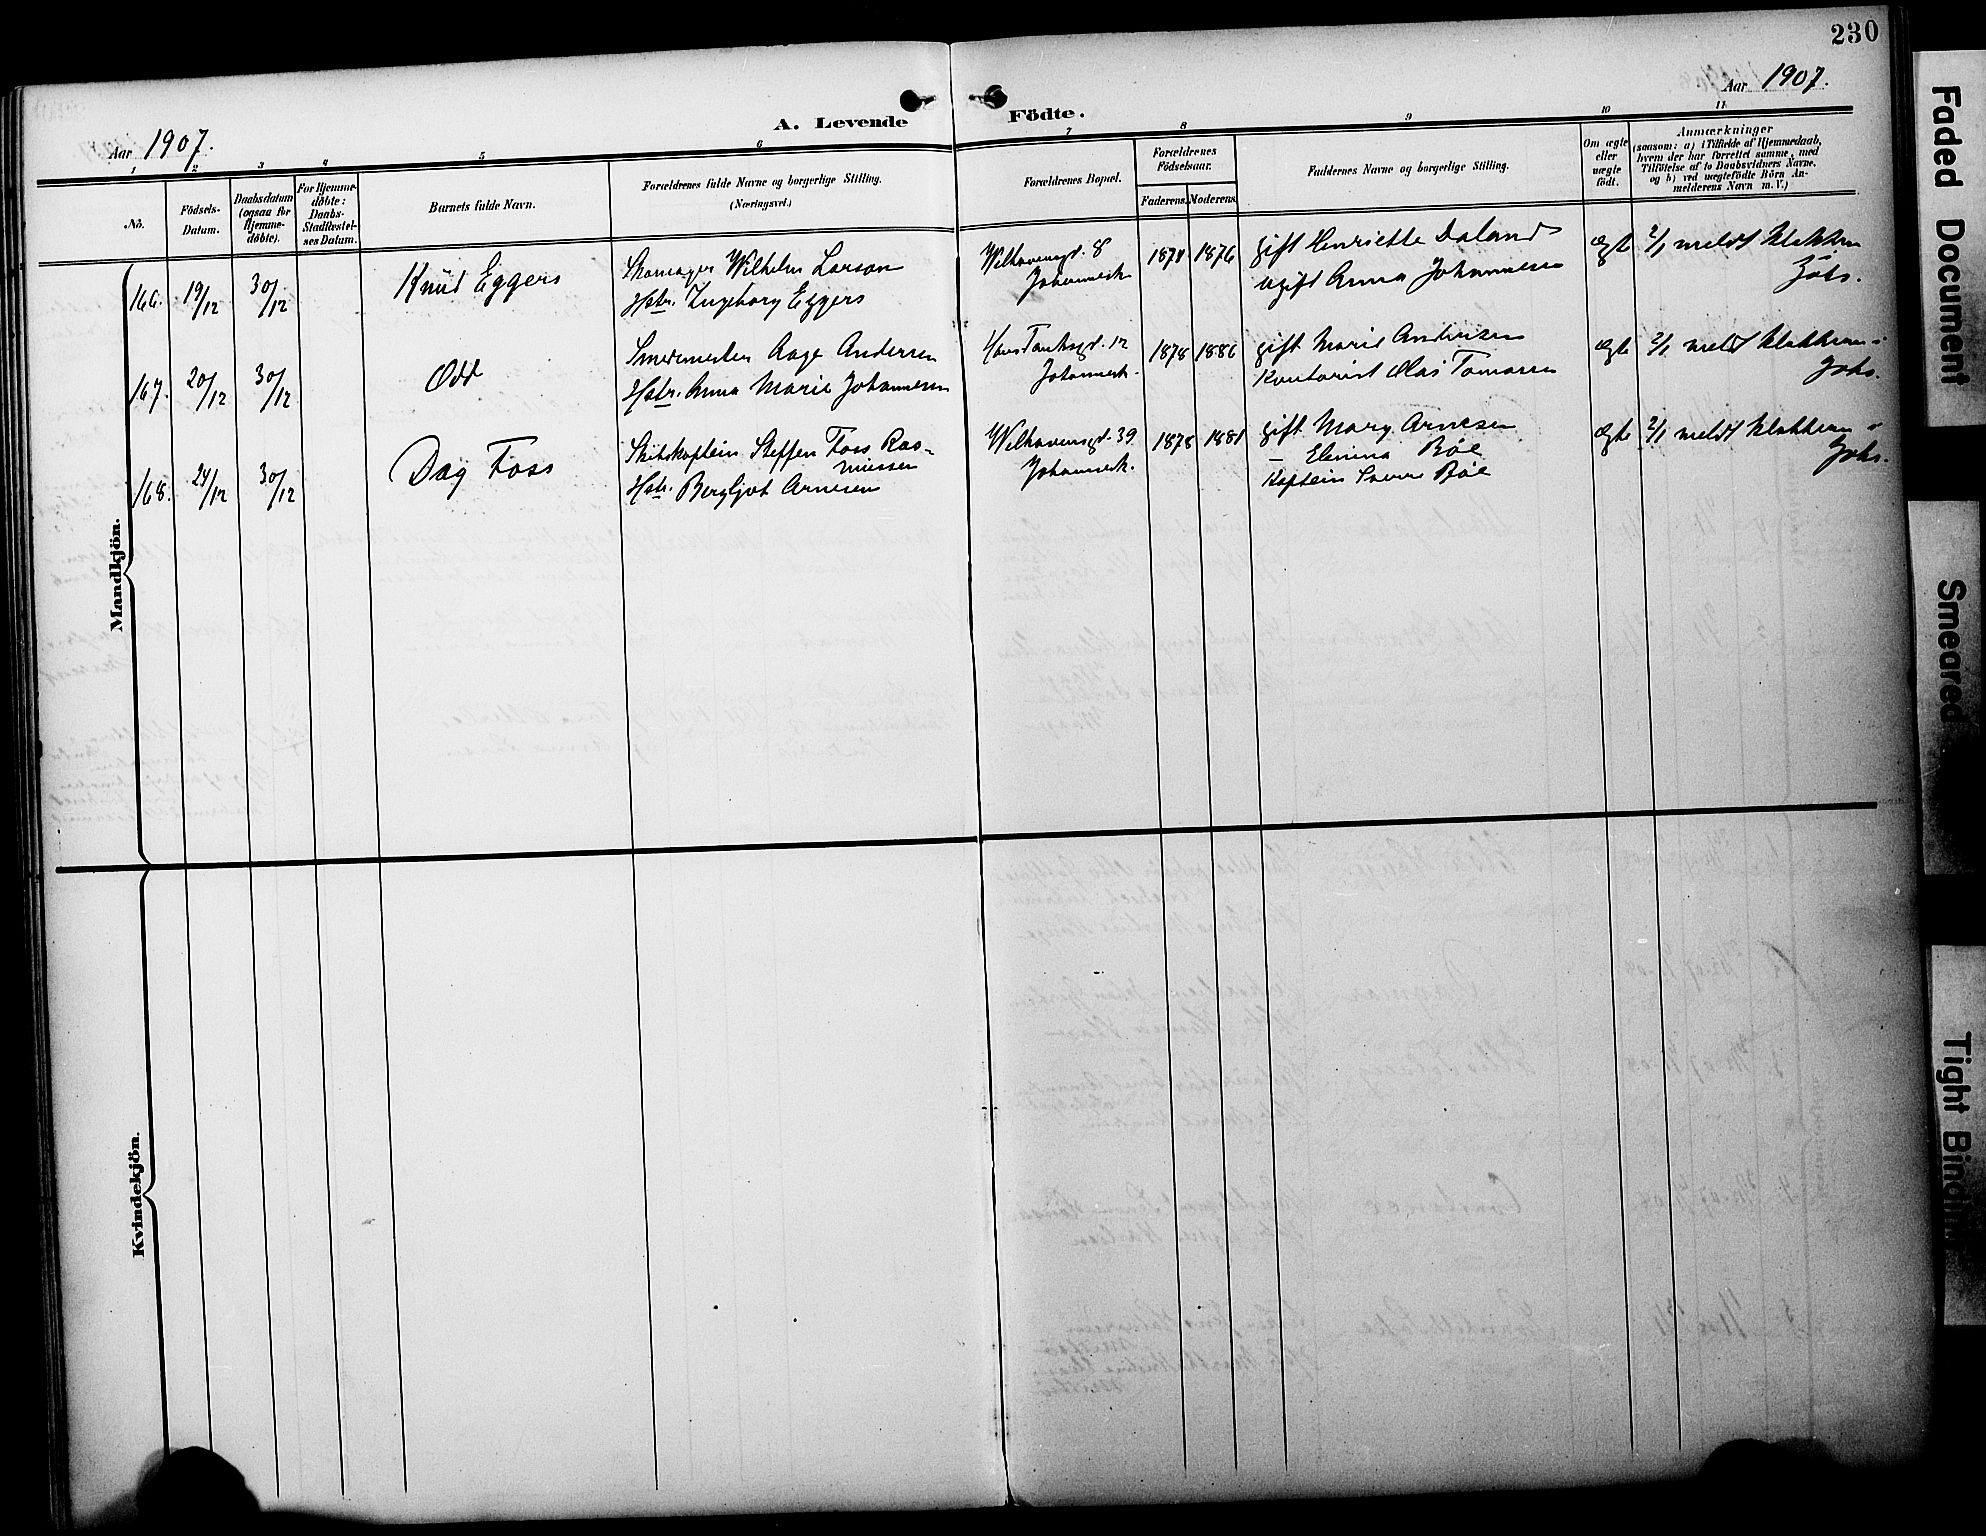 230
Aar 1907.
Aar 1907.
A. Levende Födte.
1 2 3 4 5 6 7 8 9 10 11
No.
Födsels-Datum.
Daabsdatum (ogsaa for Hjemme-döbte).
For Hjemme-döbte: Daabs-Stadfæstel-ses Datum.
Barnets fulde Navn.
Forældrenes fulde Navne og borgerlige Stilling.
(Næringsvei.)
Forældrenes Bopæl.
Forældrenes Födselsaar.
Faderens. Moderens.
Faddernes Navne og borgerlige Stilling.
Om ægte eller uægte födt.
Anmærkninger
(saasom: a) i Tilfælde af Hjemmedaab,
hvem der har forrettet samme, med
Tilföielse af to Daabsvidners Navne,
og b) ved uægtefödte Börn An-
melderens Navn m. V.)
Mandkjön.
166. 19/12 30/12 Knud Eggers
Skomager Wilhelm Larsen
Hstr. Ingeborg Eggers
Welhavensgd. 8
Johannesk.
1874 1876
gift Henriette Daland
ugift Anna Johannesen
ægte 2/1 meldt Klokkeren
Johs.
167. 20/12 30/12 Odd
Smedmester Aage Andersen
Hstr. Anna Marie Johannesen
Hans Tanksgd. 12
Johannesk.
1878 1886
gift Marie Andersen
Kontorist Olas Tomasen
ægte 2/1 meldt Klokkeren i
Johs.
168. 24/12 30/12 Dag Foss
Skibskaptein Steffen Foss Ras-
mussen
Hstr. Bergljot Arnesen
Welhavensgd. 39
Johannesk.
1878 1881
gift Mary Arnesen
— Elenina Böe
Kaptein Sverre Böe
ægte 2/1 meldt Klokkeren i
Johs.
Kvindekjön.
Faded Document
Smeared
Tight Binding